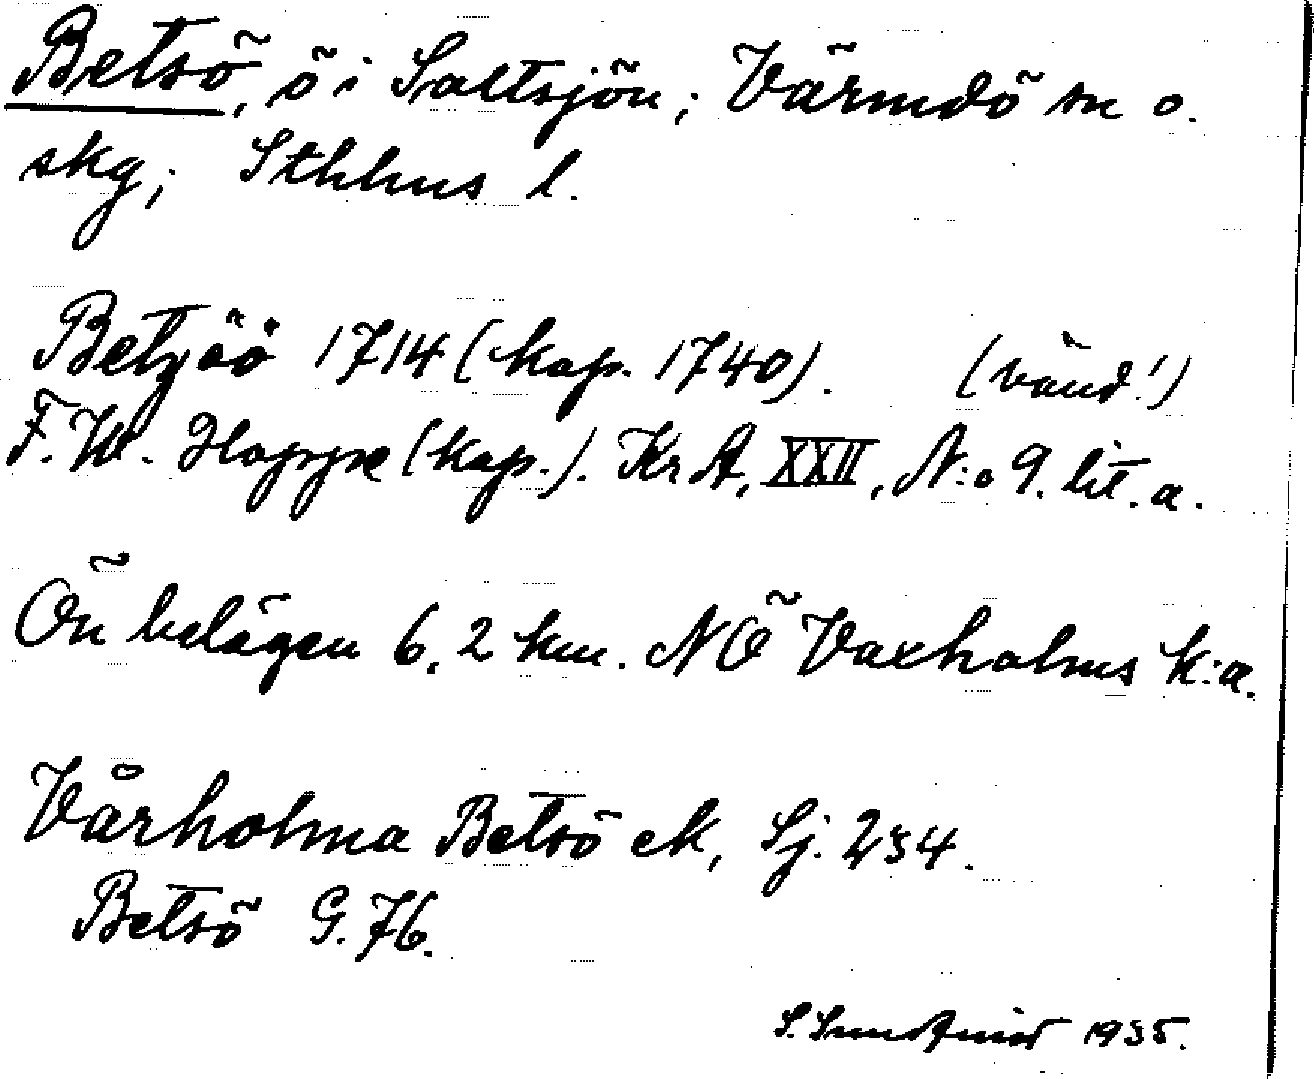 Betsö, ö i Saltsjön; Värmdö sn o.
skg; Sthlms l.
Betzöö 1714 (kop. 1740). (vänd!)
F. W. Hoppe (kop.). KrA, XXII, N:o 9. lit. a.
Ön belägen 6,2 km. NÖ Vaxholms k:a.
Vårholma Betsö ek, Sj. 234.
Betsö G. 76.
S. Sundquist 1935.